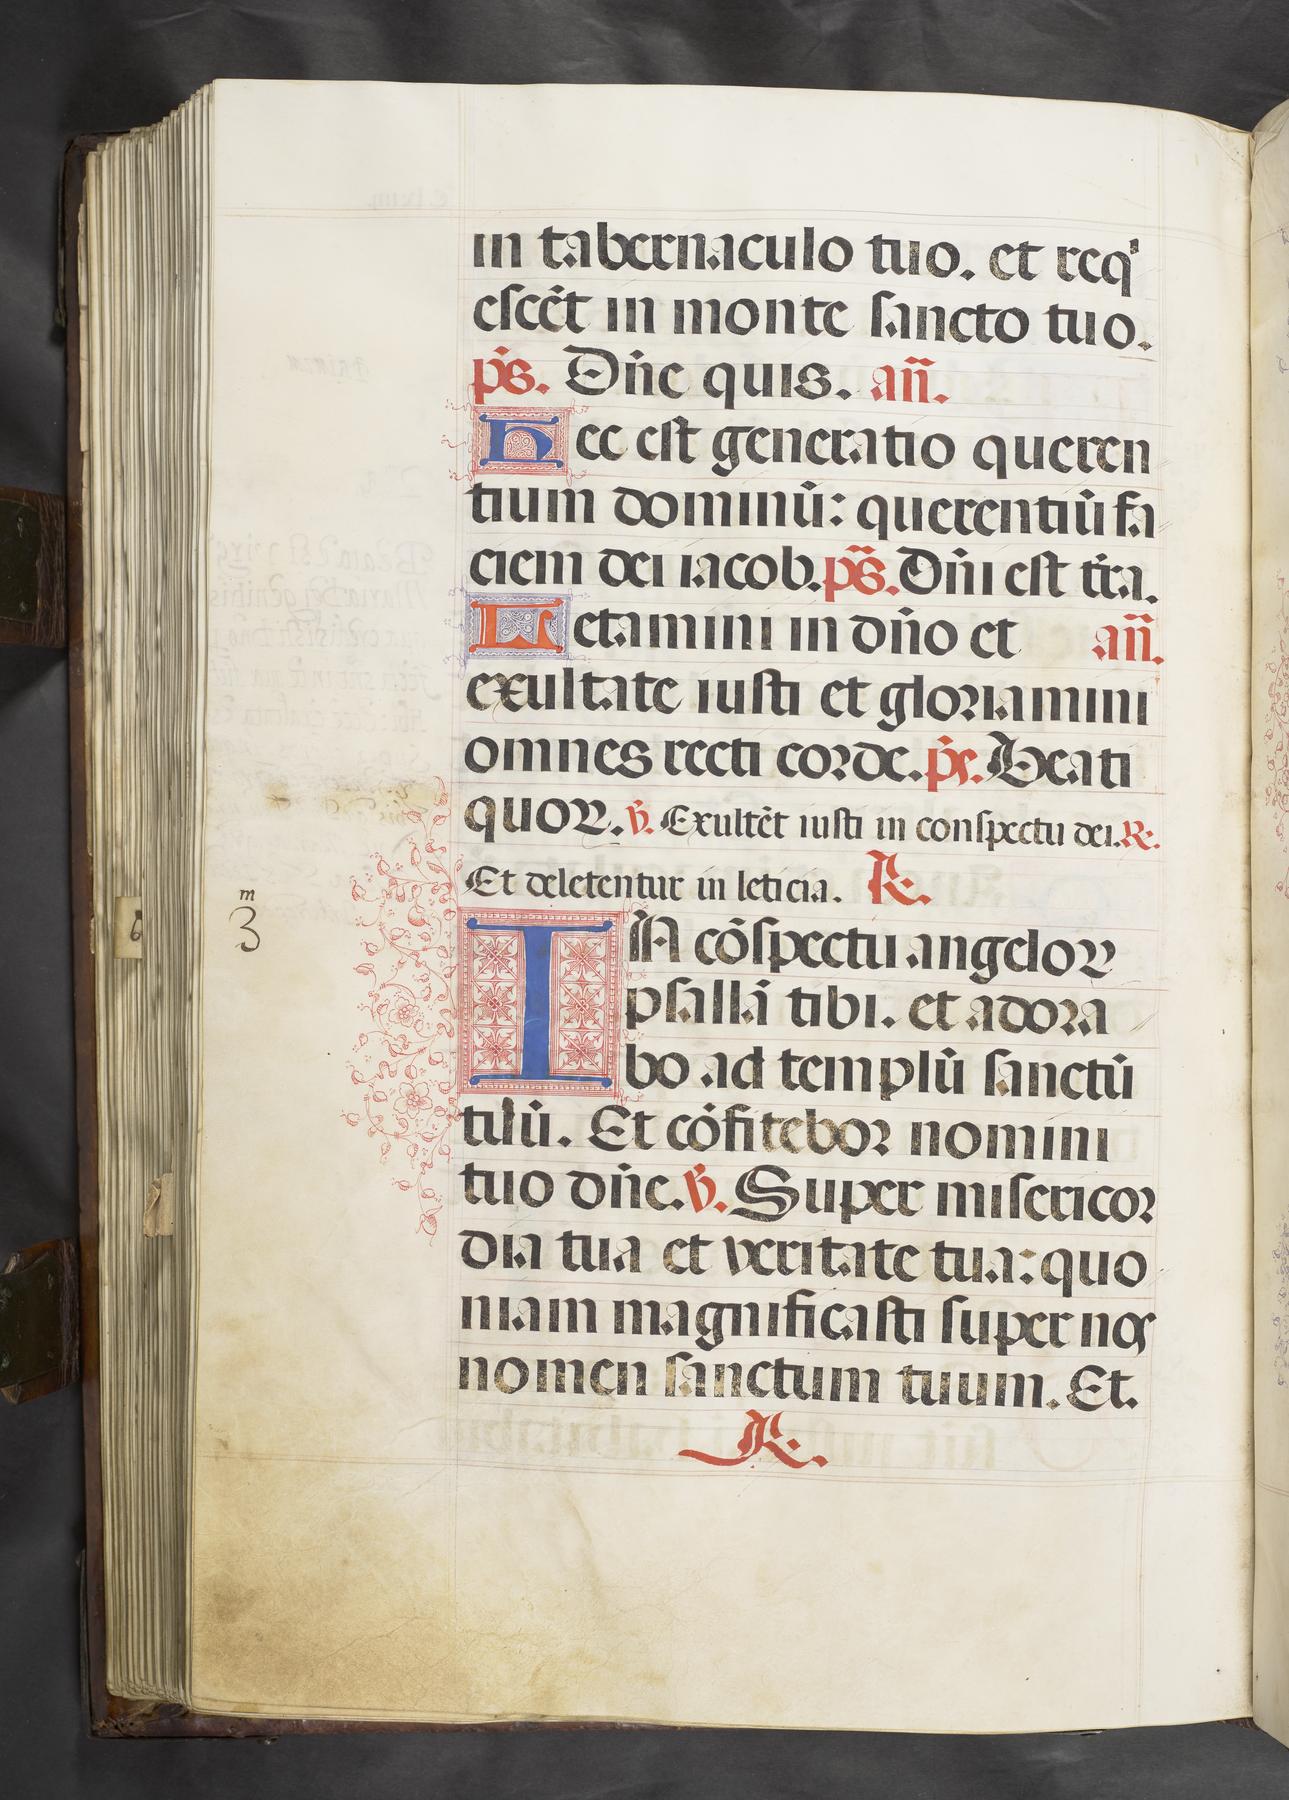 in tabernaculo tuo. et reqͥ
escēt in monte sancto tuo.
p̄s. Dn̄e quis. an̄.
Hec est generatio queren
tium dominū: querentiū fa
ciem dei iacob. p̄s. Dn̄i est tr̄a.
Letamini in dn̄o et an̄.
exultate iusti et gloriamini
omnes recti corde. p̄s. Beati
quoꝝ. v̄. Exultēt iusti in conspectu dei. R.
Et deletentur in leticia. R.
m
3
IN cōspectu angeloꝝ
psallā tibi. et adora
bo ad templū sanctū
tuū. Et cōfitebor nomini
tuo dn̄e. v̄. Super misericor
dia tua et veritate tua: quo
niam magnificasti super nos
nomen sanctum tuum. Et.
R.